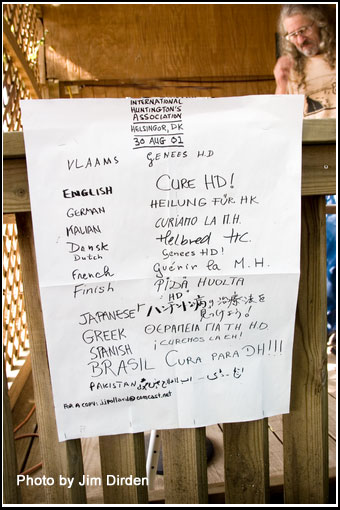 INTERNATIONAL
HUNTINGTON'S
ASSOCIATION
HELSINGOR, DK
30 AUG 01
VLAAMS GENEES HD
ENGLISH CURE HD!
GERMAN HEILUNG FÜR HK
ITALIAN CURIAMO LA M.H.
Dansk Helbred HC.
Dutch Genees HD!
French Guérir la M.H.
Finish PIDÄ HUOLTA
HD!
JAPANESE「ハンチントン病の治療法を
見つけよう。
GREEK ΘΕΡΑΠΕΙΑ ΓΙΑ ΤΗ H.D.
SPANISH ¡CUREMOS LA EH!
BRASIL CURA PARA DH!!!
PAKISTAN
FOR A COPY: jjpollard@comcast.net
Photo by Jim Dirden